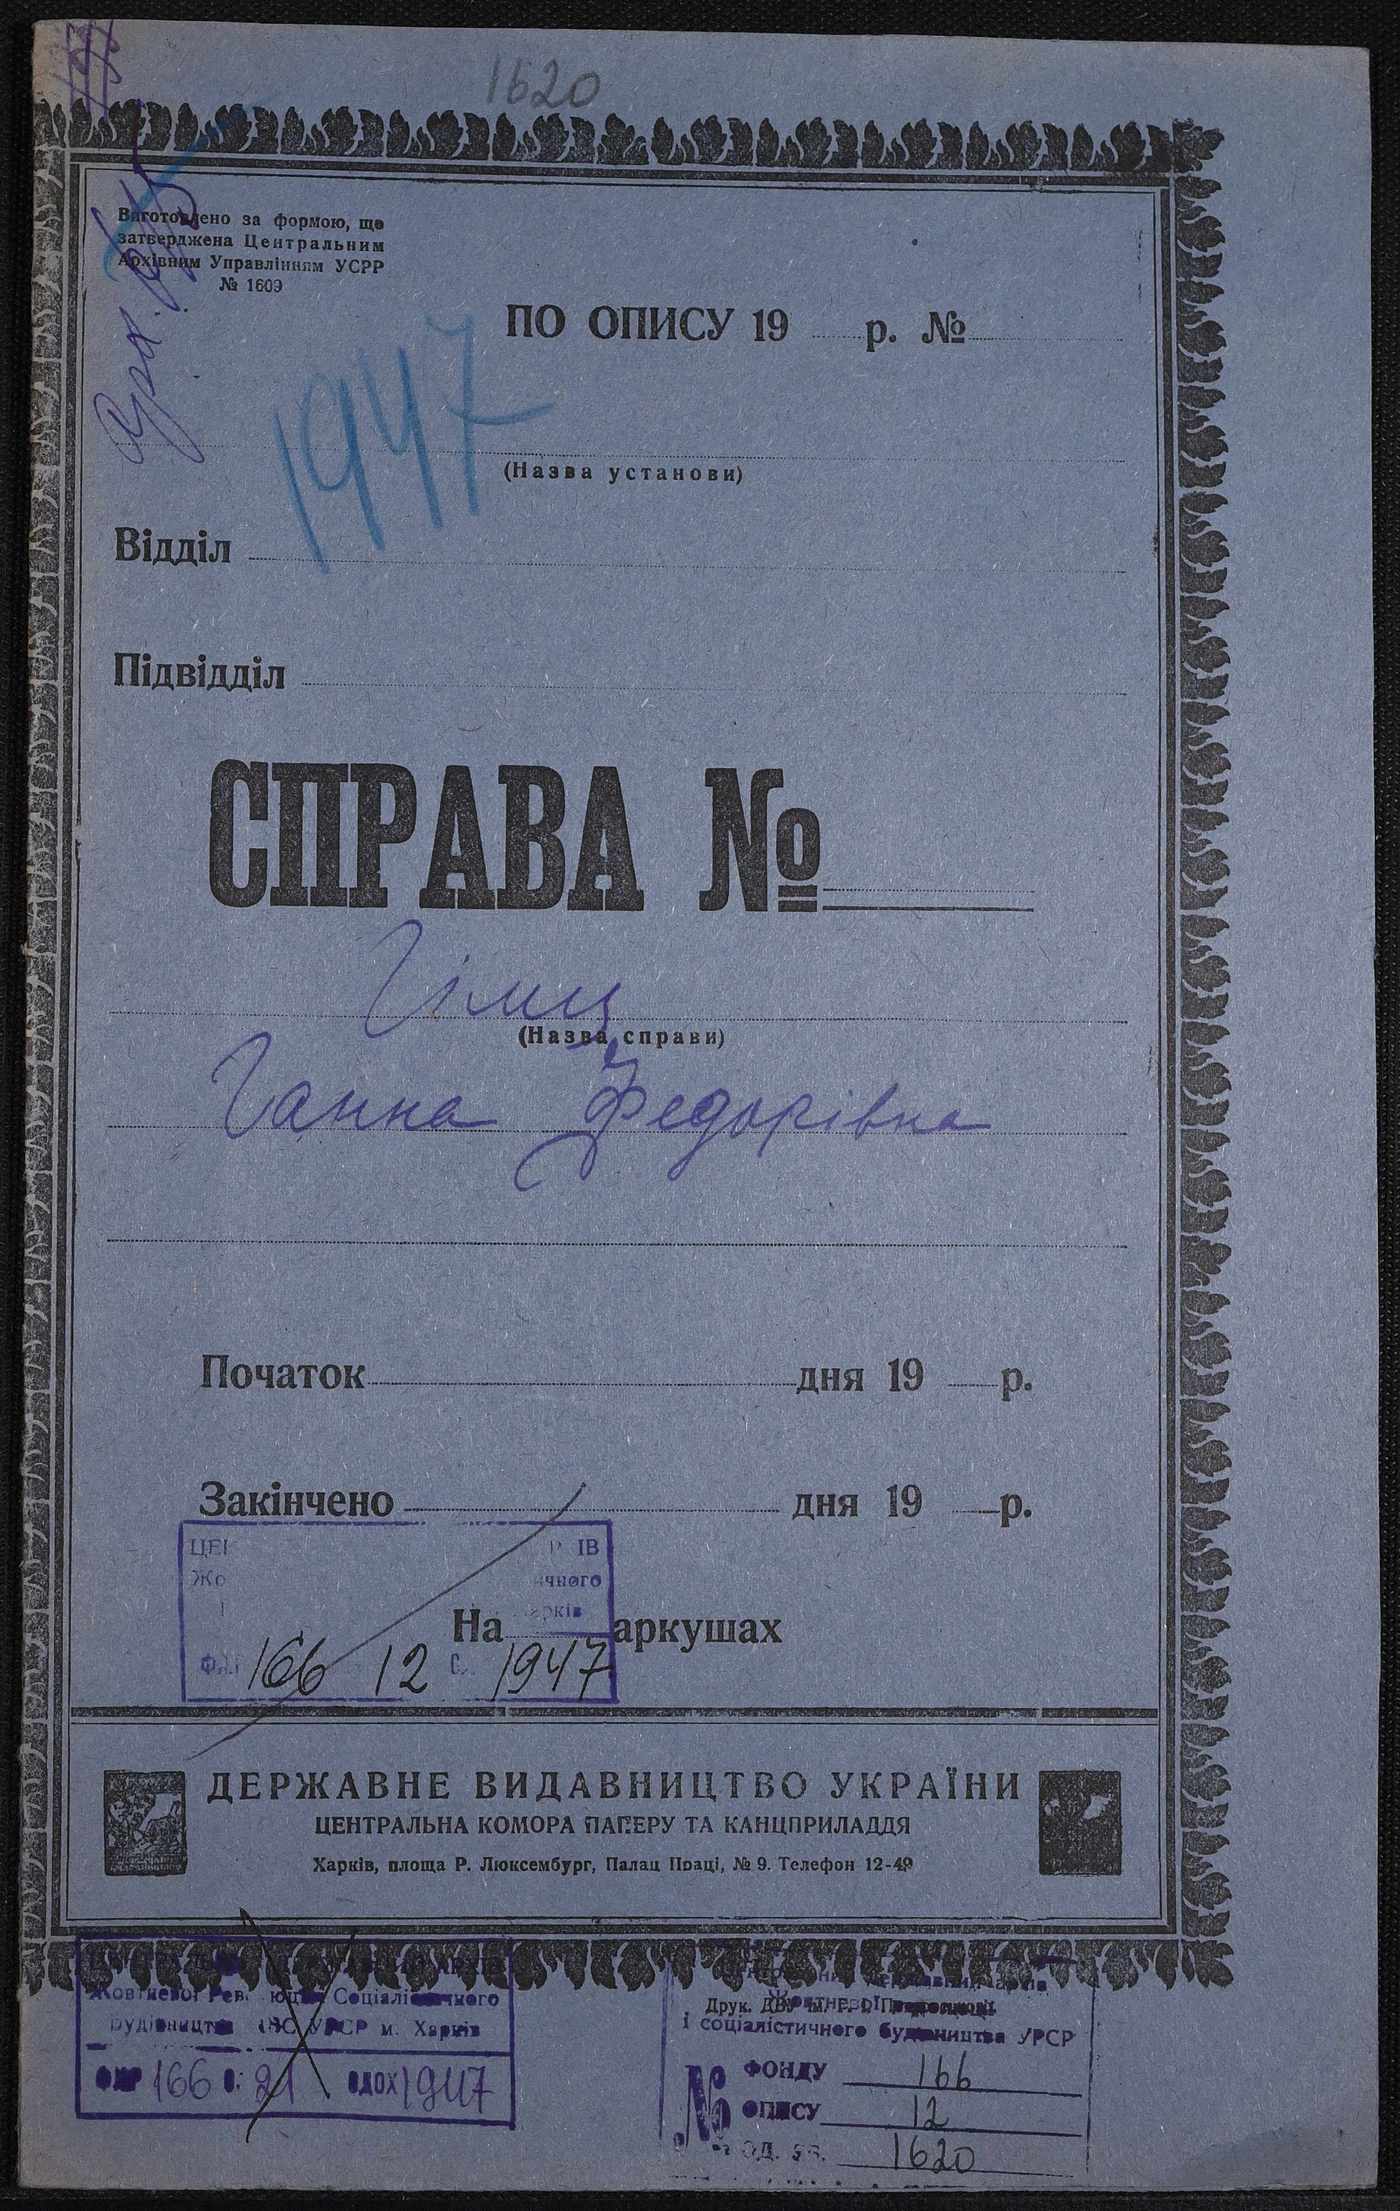 1620
Виготовлено за формою, що
затверджена Центральним
Архівним Управлінням УСРР
№ 1609
ПО ОПИСУ 19 р. №
1947
(Назва установи)
Відділ
Підвідділ
СПРАВА №
Гімц
(Назва справи)
Ганна Федорівна
Початок дня 19 р.
Закінчено дня 19 р.
На аркушах
166 12 1947
ДЕРЖАВНЕ ВИДАВНИЦТВО УКРАЇНИ
ЦЕНТРАЛЬНА КОМОРА ПАПЕРУ ТА КАНЦПРИЛАДДЯ
Харків, площа Р. Люксембург, Палац Праці, № 9. Телефон 12-49
Жовтневої Революції Соціалістичного
будівництва УРСР м. Харків
166 О. 21 ОДОХ 1947
і соціалістичного будівництва УРСР
№ ФОНДУ 166
ОПИСУ 12
ОД. ЗБ. 1620